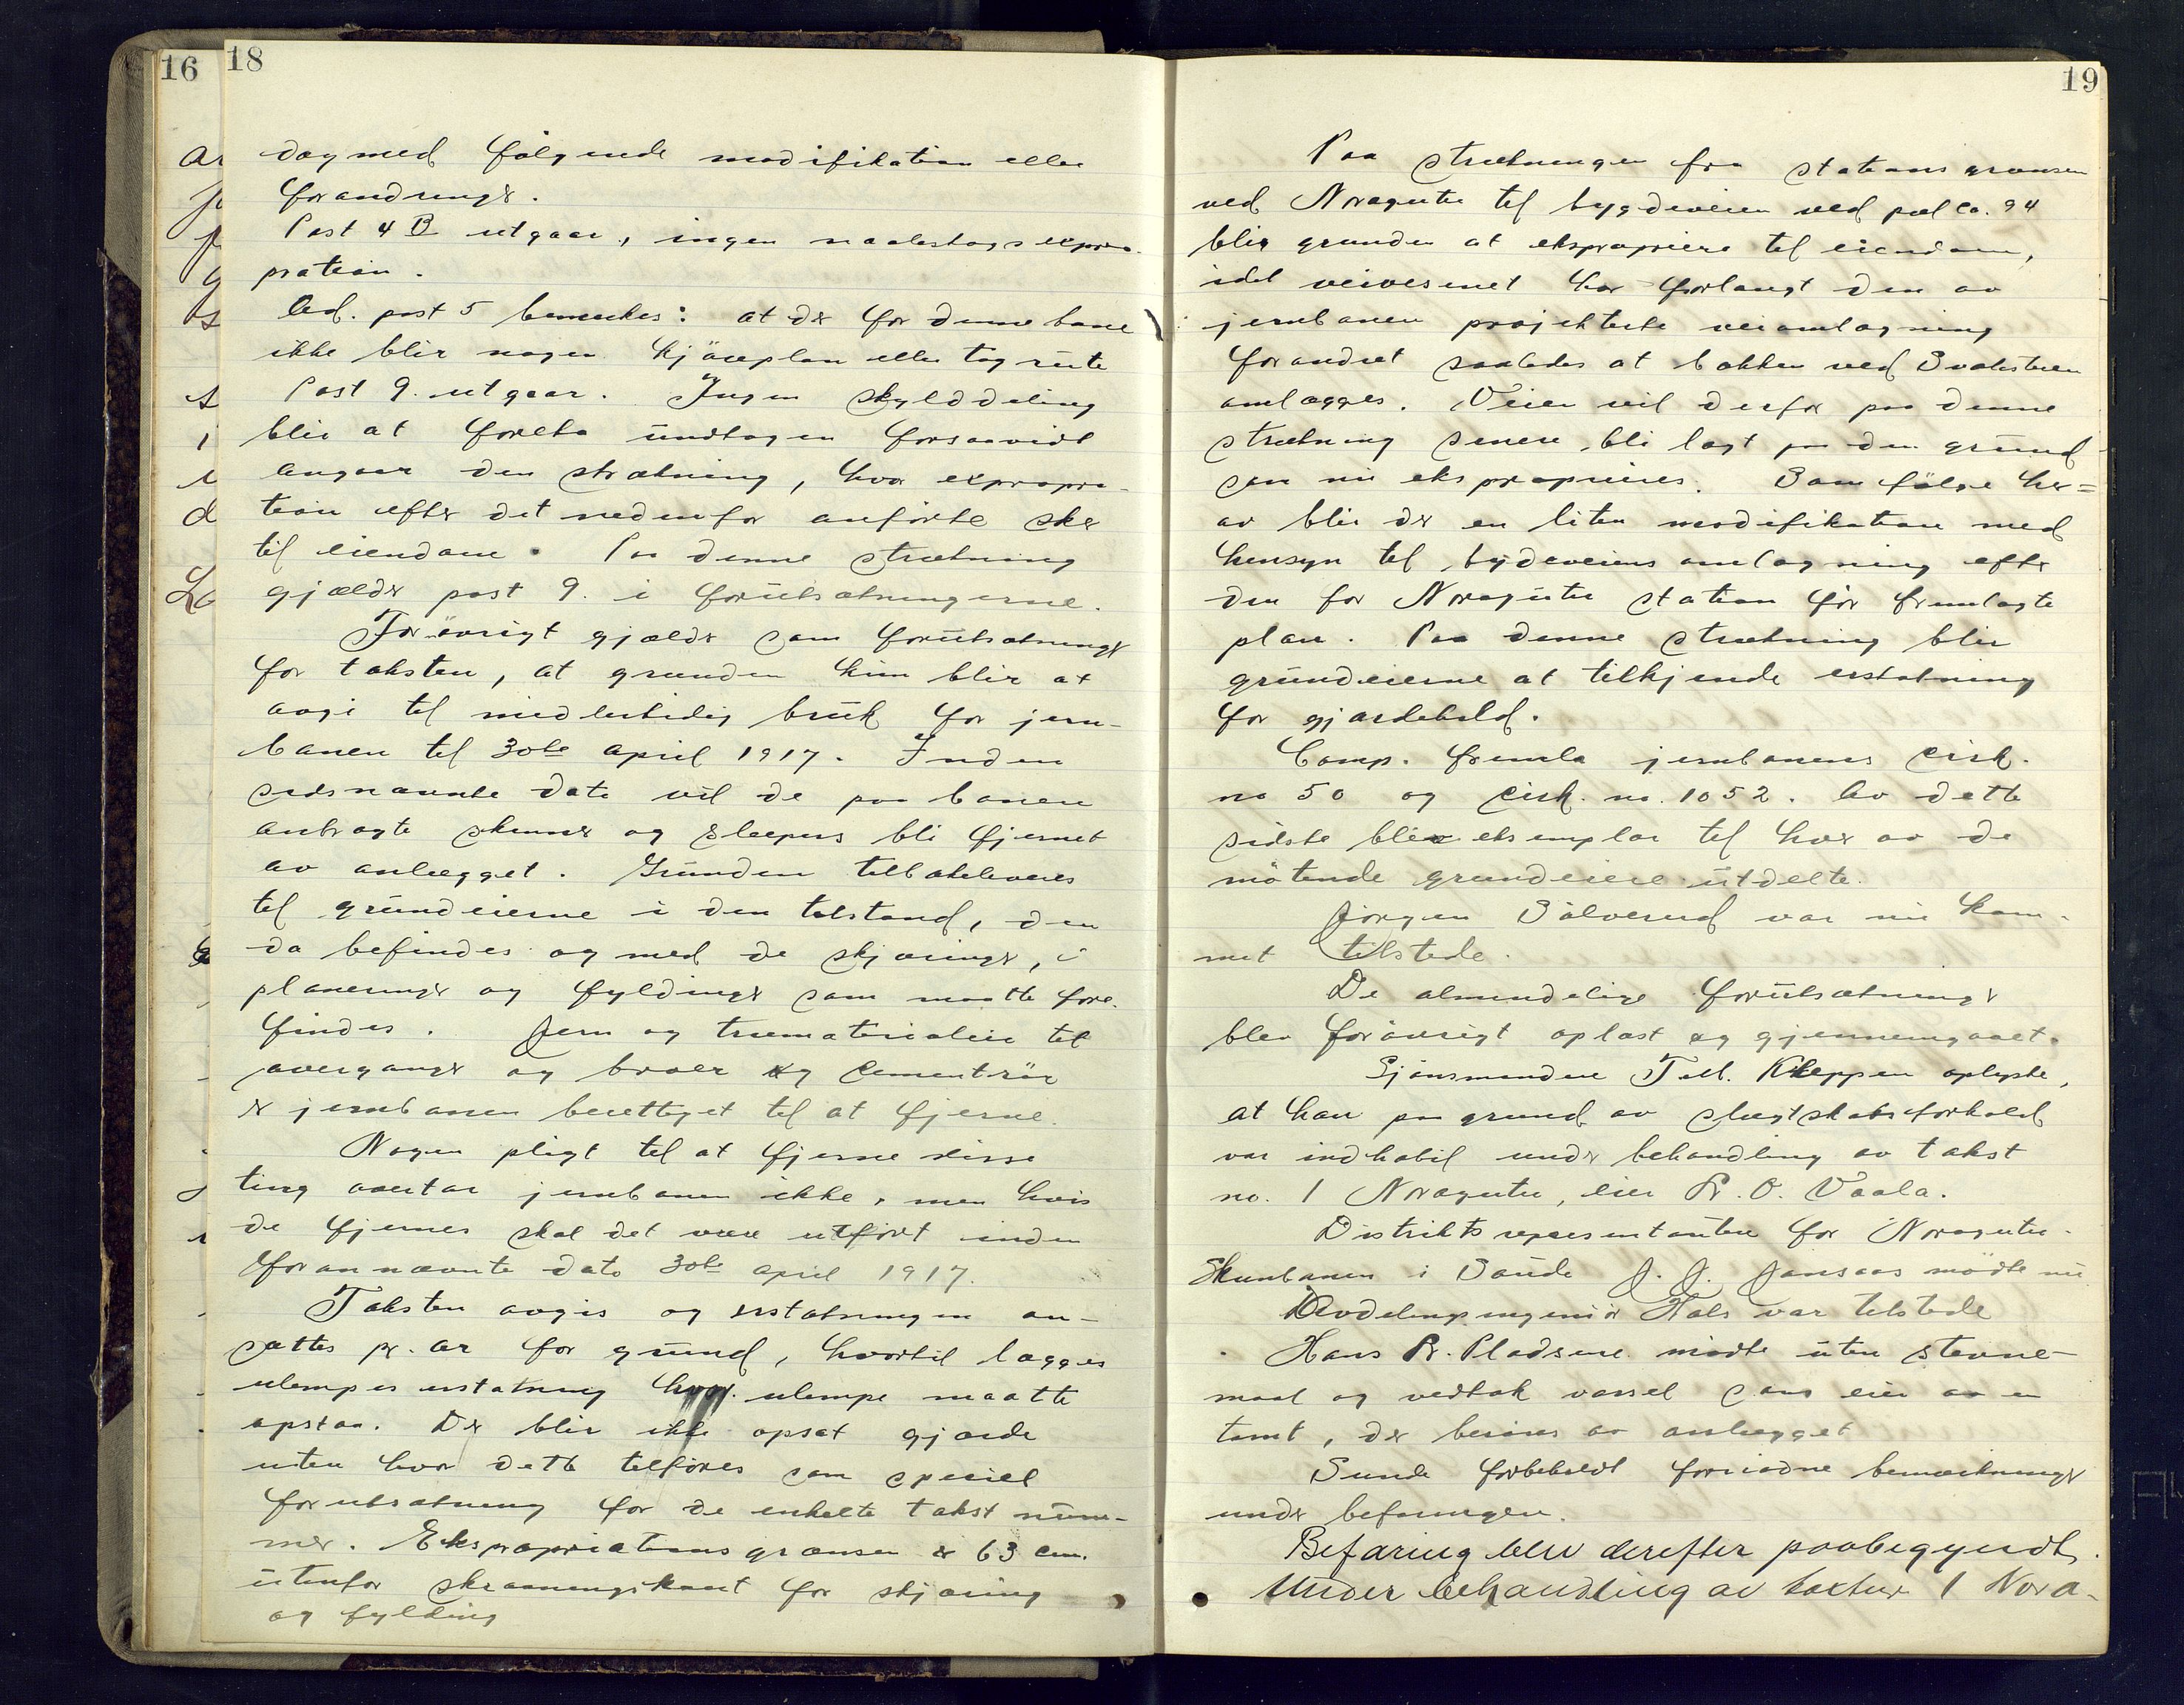 16
18
dog med følgende modifikation eller
forandringer.
Post 4 B utgaar, ingen naalestogs expro-
priation.
Ad. post 5 bemerkes: at der for denne bane
ikke blir nogen kjöreplan eller togrute
Post 9. utgaar. Ingen skylddeling
blir at foreta undtagen forsaavidt
angaar den strækning, hvor expropria-
tion efter det nedenfor anförte sker
til eiendom. Paa denne strækning
gjælder post 9. i forutsætningerne.
For övrigt gjælder som forutsætninger
for taksten, at grunden kun blir at
avgi til midlertidig bruk for jern-
banen til 30te april 1917. Inden
sidsnævnte dato vil de paa banen
anbragte skinner og sleepers bli fjernet
av anlægget. Grunden tilbakeleveres
til grundeierne i den tilstand, den
da befindes og med de skjæringer, i
planeringer og fyldinger som maatte fore-
findes. Jern og træmaterialier til
overganger og broer og cementrör
er jernbanen berettiget til at fjerne.
Nogen pligt til at fjerne disse
ting overtar jernbanen ikke, men hvis
de fjernes skal det være utfört inden
forannævnte dato 30te april 1917.
Taksten avgis og erstatningen an-
sættes pr. ar for grund, hvortil lægges
ulempeserstatning hvor ulempe maatte
opstaa. Der blir ikke opsat gjærde
uten hvor dette tilföies som speciel
forutsætning for de enkelte takst num-
mer. Ekspropriationsgrænsen er 63 cm.
utenfor skraaningskant for skjæring
og fylding
19
Paa strækningen fra stationsgrænsen
ved Noragutu til bygdeveien ved pæl ca. 94
blir grunden at ekspropriere til eiendom,
idet veivesenet har forlangt den av
jernbanen projekterte veiomlægning
forandret saaledes at bakken ved Svalesteen
omlægges. Veien vil derfor paa denne
strækning senere bli lagt paa den grund
som nu eksproprieres. Som fölge her=
av blir der en liten modifikation med
hensyn til bydeveiens omlægning efter
den for Noragutu station för fremlagte
plan. Paa denne strækning blir
grundeierne at tilkjende erstatning
for gjærdehold.
Comp. fremla jernbanens cirk.
no 50 og cirk. no. 1052. Av dette
sidste blev eksemplar til hver av de
mötende grundeiere utdelte.
Jörgen Sölverud var nu kom-
met tilstede.
De almindelige forutsætninger
blev forövrigt oplæst og gjennemgaaet.
Skjönsmanden Tell. Kleppen oplyste,
at han paa grund av slægtskabsforhold
var indhabil under behandling av takst
no. 1 Noragutu, eier Kr. O. Vaala.
Distriktsrepresentanten for Noragutu-
Skunbanen i Saude J. J. Jönsaas mödte nu
Avdelingsingeniör Hals var tilstede
Hans Pr. Pladsene mödte uten stevne-
maal og vedtok varsel som eier av en
tomt, der beröres av anlægget
Sunde forbeholdt fornödne bemærkninger
under befaringen.
Befaring blev derefter paabegyndt.
Under behandling av takstnr 1 Nora-